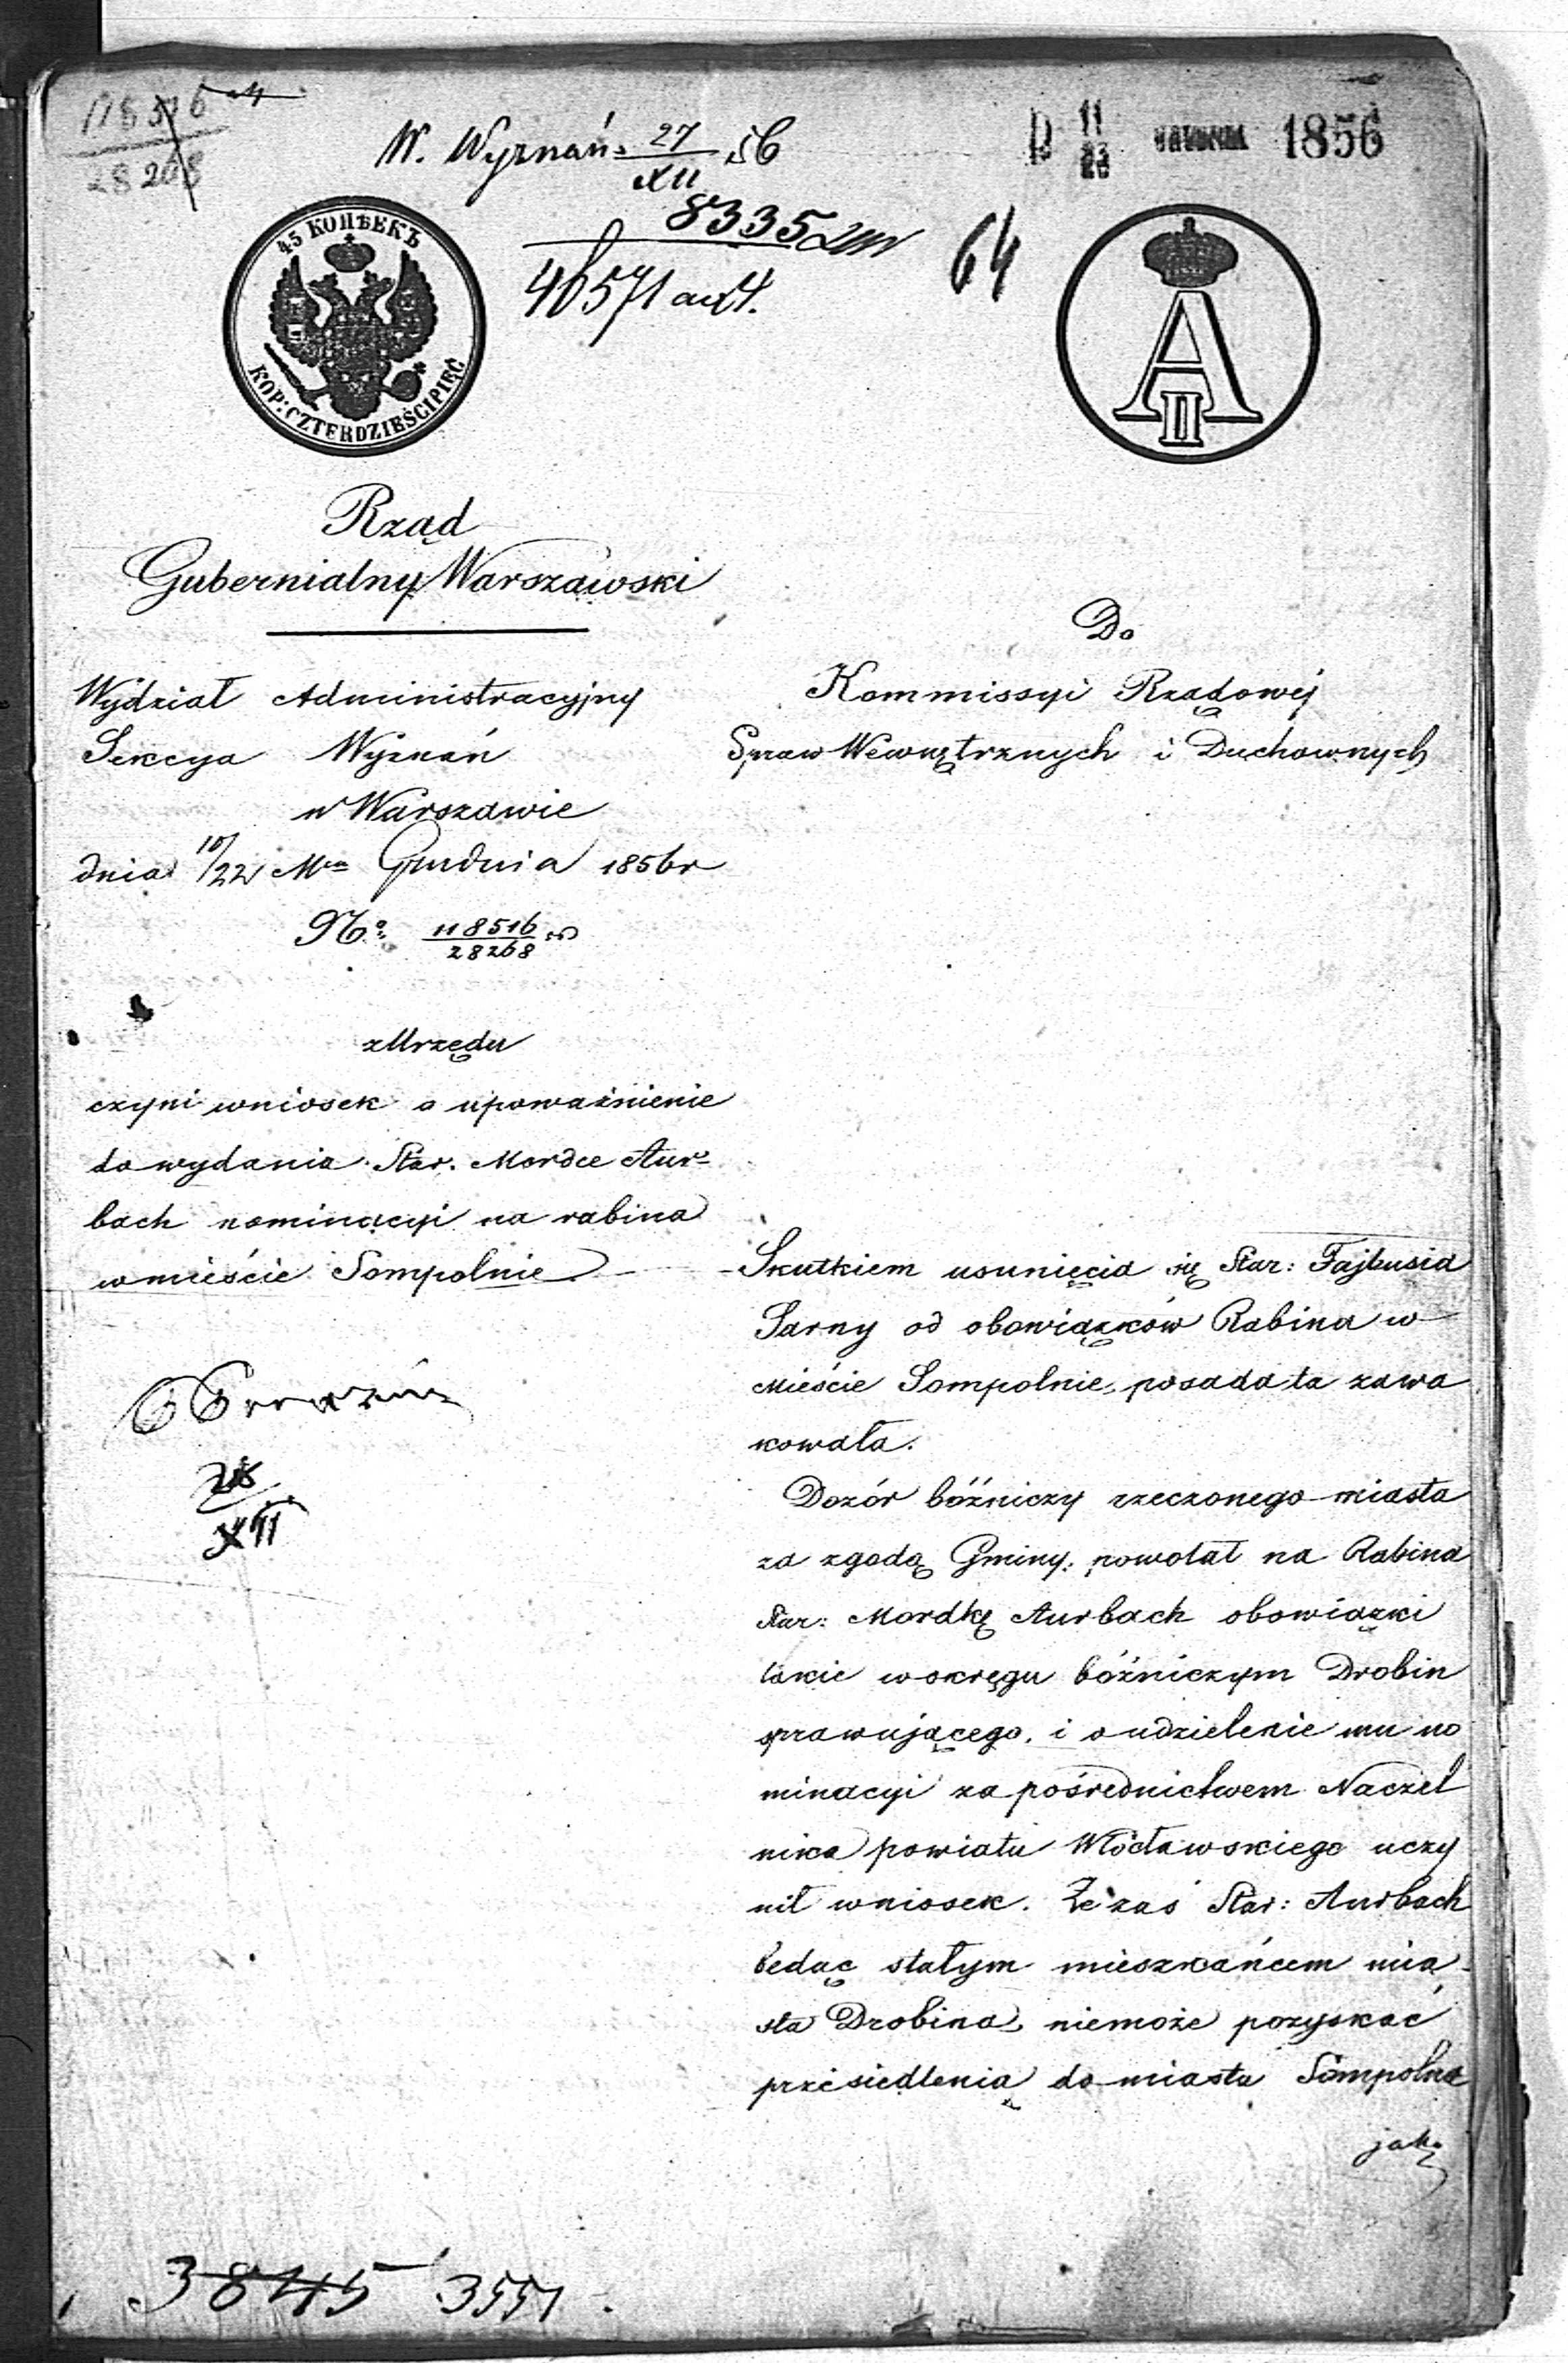 118516
28268
W. Wyznań 27/XII 56
8335
46571
64
11
23
1856
45 КОПѢЕКЪ
KOP: CZTERDZIEŚCI PIĘĆ
A II
Rząd
Gubernialny Warszawski
Wydział Administracyjny
Sekcya Wyznań
w Warszawie
dnia 10/22 Mca Grudnia 1856 r
No: 118516
28268
z Urzędu
czyni wniosek o upoważnienie
do wydania Star. Mordce Aur-
bach nominacyi na rabina
w mieście Sompolnie
XII
Do
Kommissyi Rządowéj
Spraw Wewnętrznych i Duchownych
Skutkiem usunięcia się Star: Fajbusia
Sarny od obowiązków Rabina w
Mieście Sompolnie, posada ta zawa
kowała.
Dozór bóżniczy rzeczonego miasta
za zgodą Gminy, powołał na Rabina
Star: Mordkę Aurbach obowiązki
takie w okręgu bóżniczym Drobin
sprawującego, i o udzielenie mu no
minacyi za pośrednictwem Naczel
nika powiatu Włocławskiego uczy
nił wniosek. Że zaś Star: Aurbach
będąc stałym mieszkańcem mia-
sta Drobina, niemoże pozyskać
przesiedlenia do miasta Sompolna
jak
3845 3551